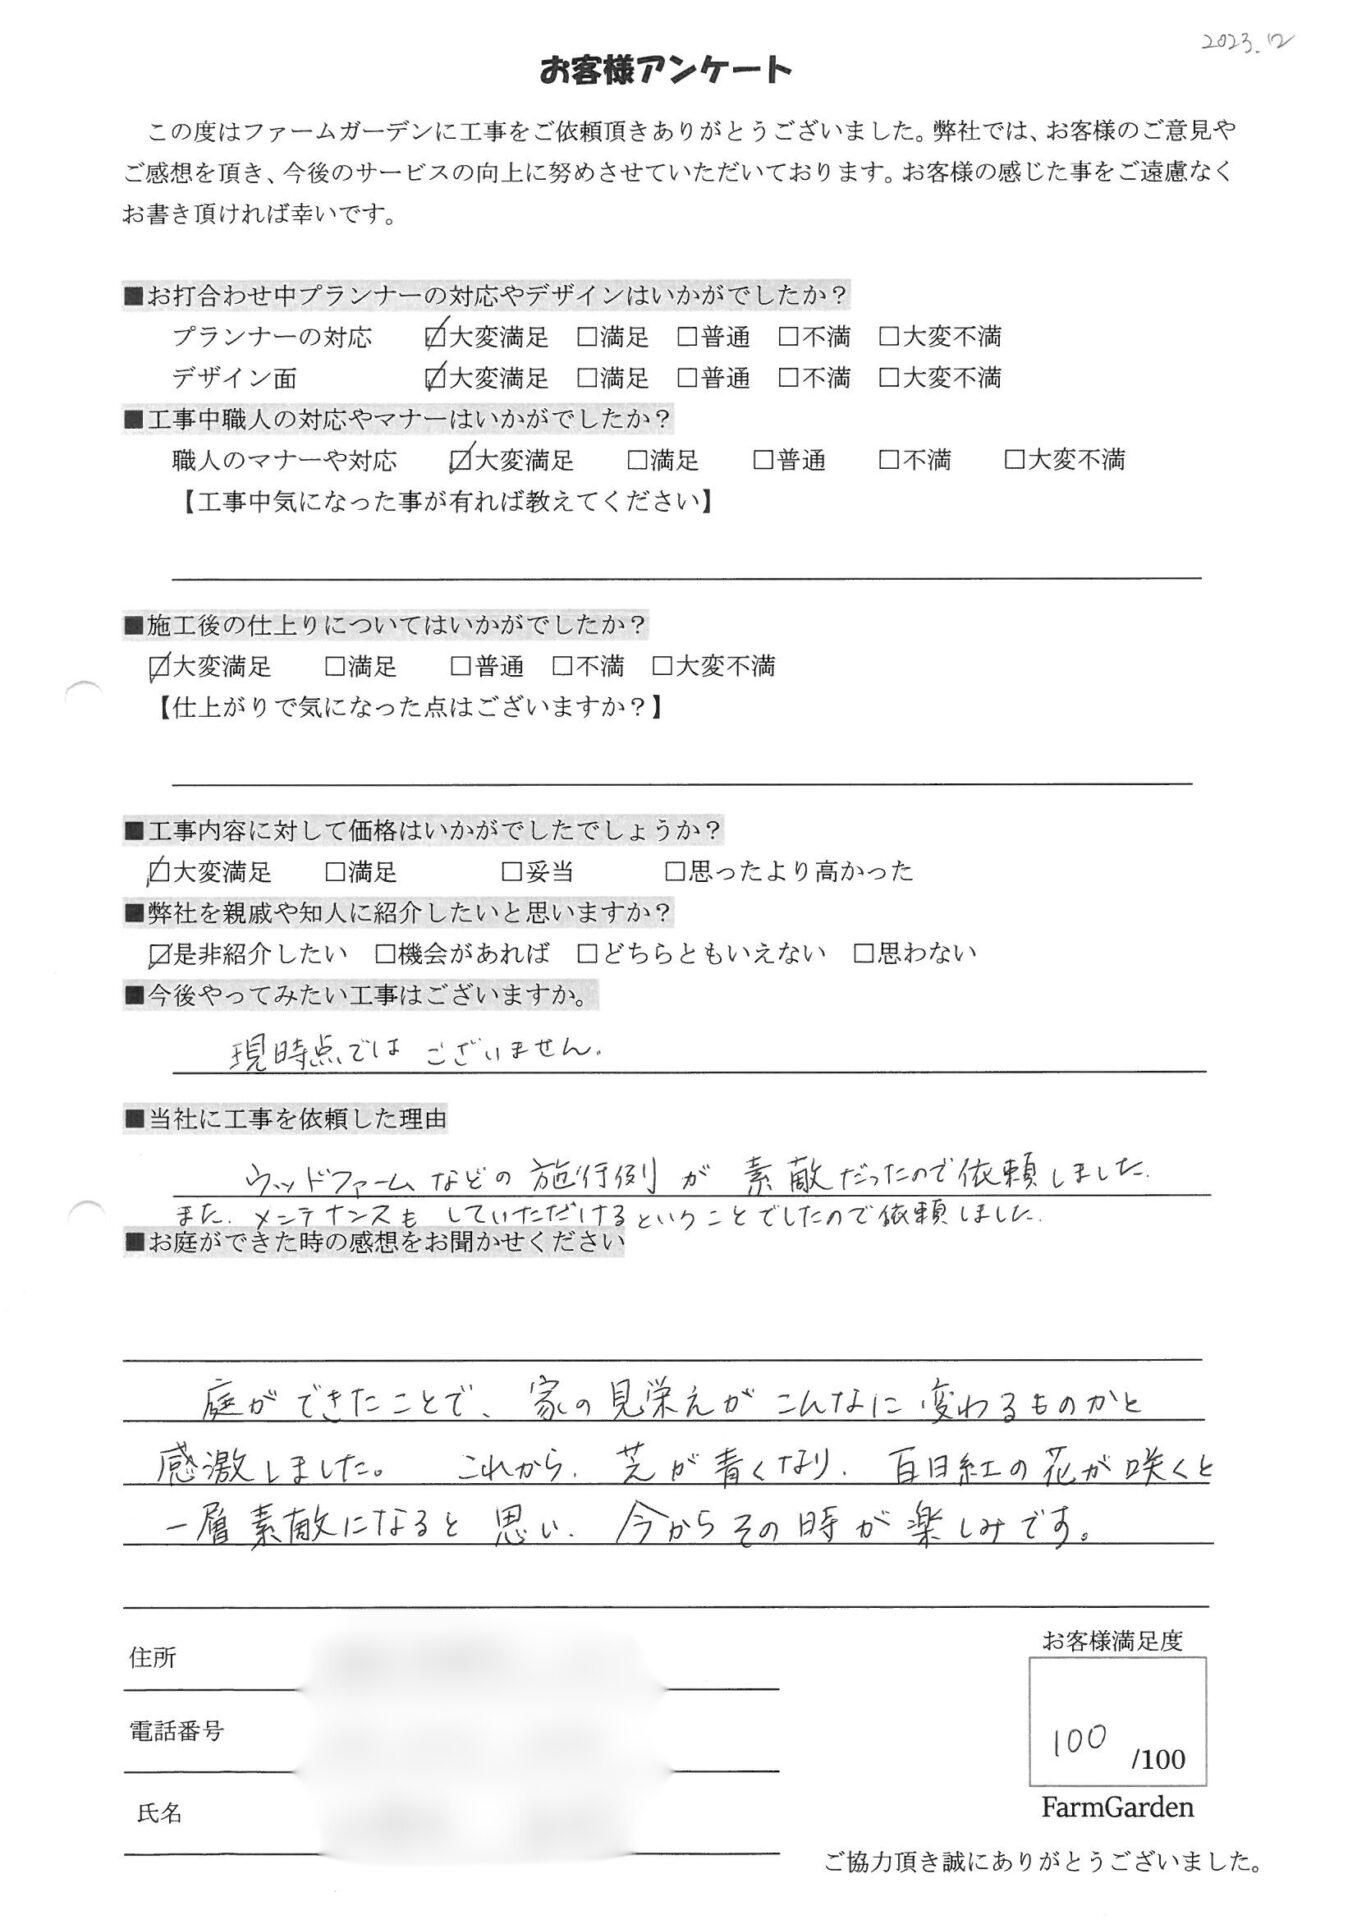 2023.12
お客様アンケート
この度はファームガーデンに工事をご依頼頂きありがとうございました。弊社では、お客様のご意見や
ご感想を頂き、今後のサービスの向上に努めさせていただいております。お客様の感じた事をご遠慮なく
お書き頂ければ幸いです。
■お打合わせ中プランナーの対応やデザインはいかがでしたか？
プランナーの対応 ☑大変満足 □満足 □普通 □不満 □大変不満
デザイン面 ☑大変満足 □満足 □普通 □不満 □大変不満
■工事中職人の対応やマナーはいかがでしたか？
職人のマナーや対応 ☑大変満足 □満足 □普通 □不満 □大変不満
【工事中気になった事が有れば教えてください】
■施工後の仕上りについてはいかがでしたか？
☑大変満足 □満足 □普通 □不満 □大変不満
【仕上がりで気になった点はございますか？】
■工事内容に対して価格はいかがでしたでしょうか？
☑大変満足 □満足 □妥当 □思ったより高かった
■弊社を親戚や知人に紹介したいと思いますか？
☑是非紹介したい □機会があれば □どちらともいえない □思わない
■今後やってみたい工事はございますか。
現時点では ございません.
■当社に工事を依頼した理由
ウッドファームなどの施行例が素敵だったので依頼しました.
また. メンテナンスも していただけるということでしたので依頼しました.
■お庭ができた時の感想をお聞かせください
庭ができたことで、家の見栄えがこんなに変わるものかと
感激しました。 これから. 芝が青くなり. 百日紅の花が咲くと
一層素敵になると思い. 今からその時が楽しみです。
住所
電話番号
氏名
お客様満足度
100 /100
FarmGarden
ご協力頂き誠にありがとうございました。